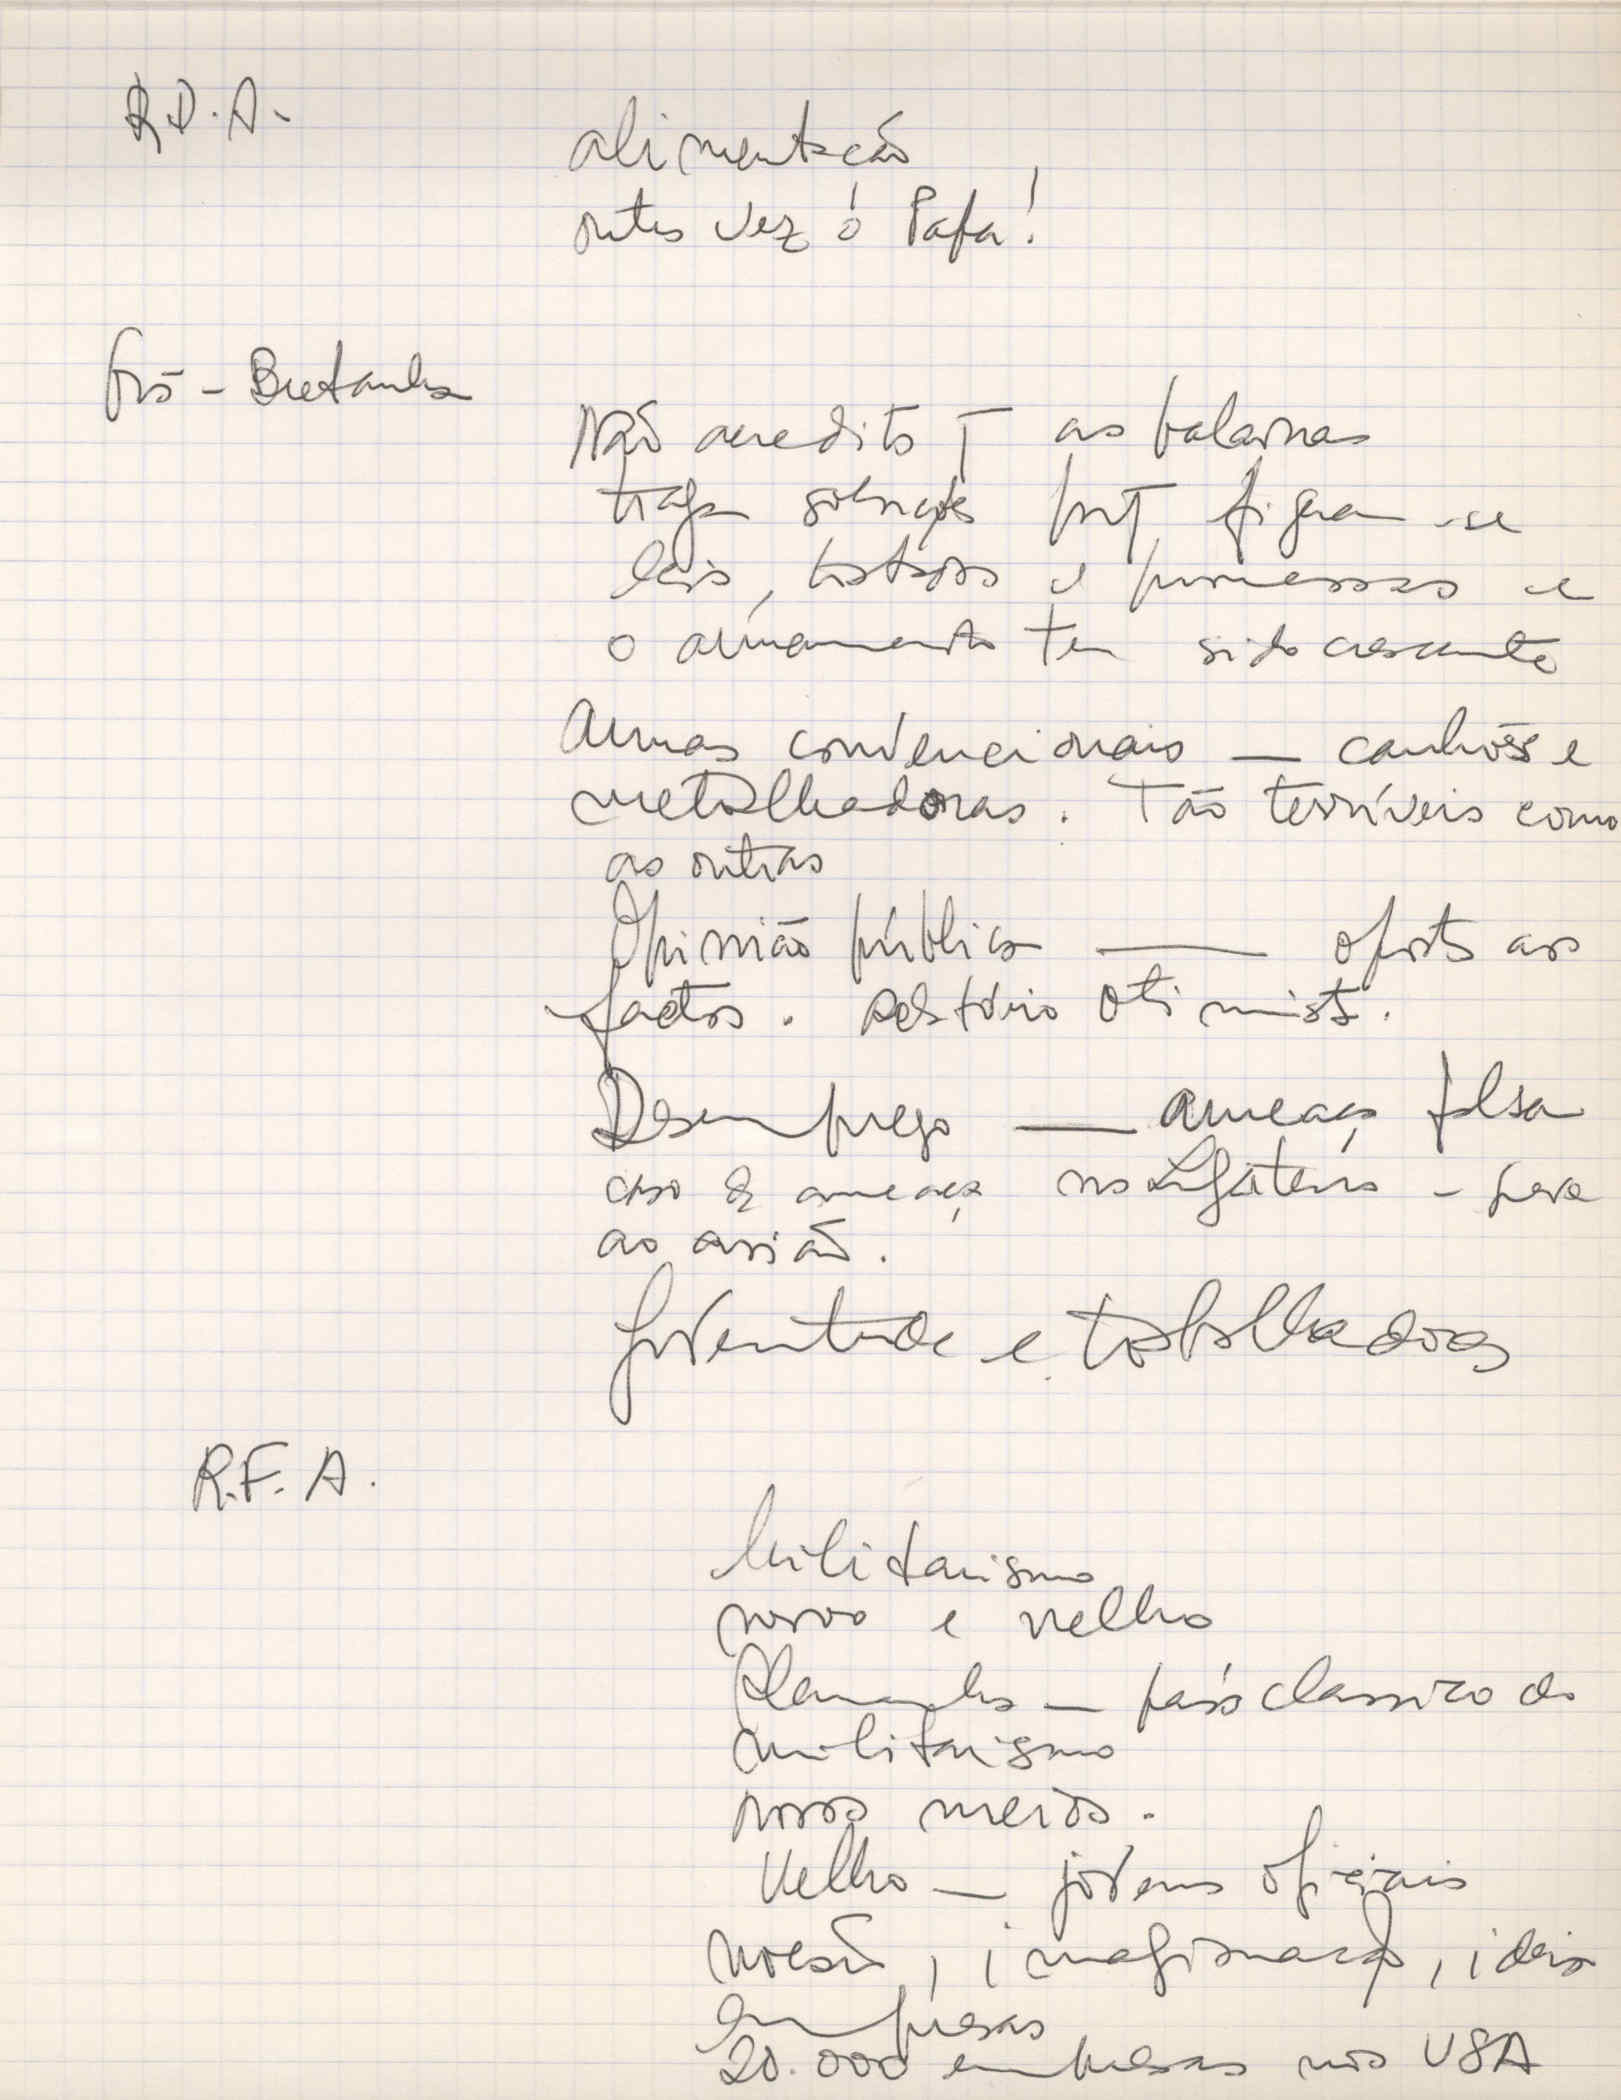 R.D.A.
alimentação
outra vez o Papa!
Grã-Bretanha
Não acredito q as palavras
traga soluções porq, fizeram-se
leis, tratados e promessas e
o armamento tem sido crescente
Armas convencionais — canhões e
metralhadoras. Tão terríveis como
as outras
Opinião pública — oposta aos
factos. Relatório otimista.
Desemprego — ameaça falsa
caso de ameaça na Inglaterra -
ao avião.
Juventude e trabalhadores
R.F.A.
Militarismo
novo e velho
Alemanha — país classico do
militarismo
novos meios.
Velho — jovens oficiais
, imaginação, ideia
empresas
20.000 empresas nos USA